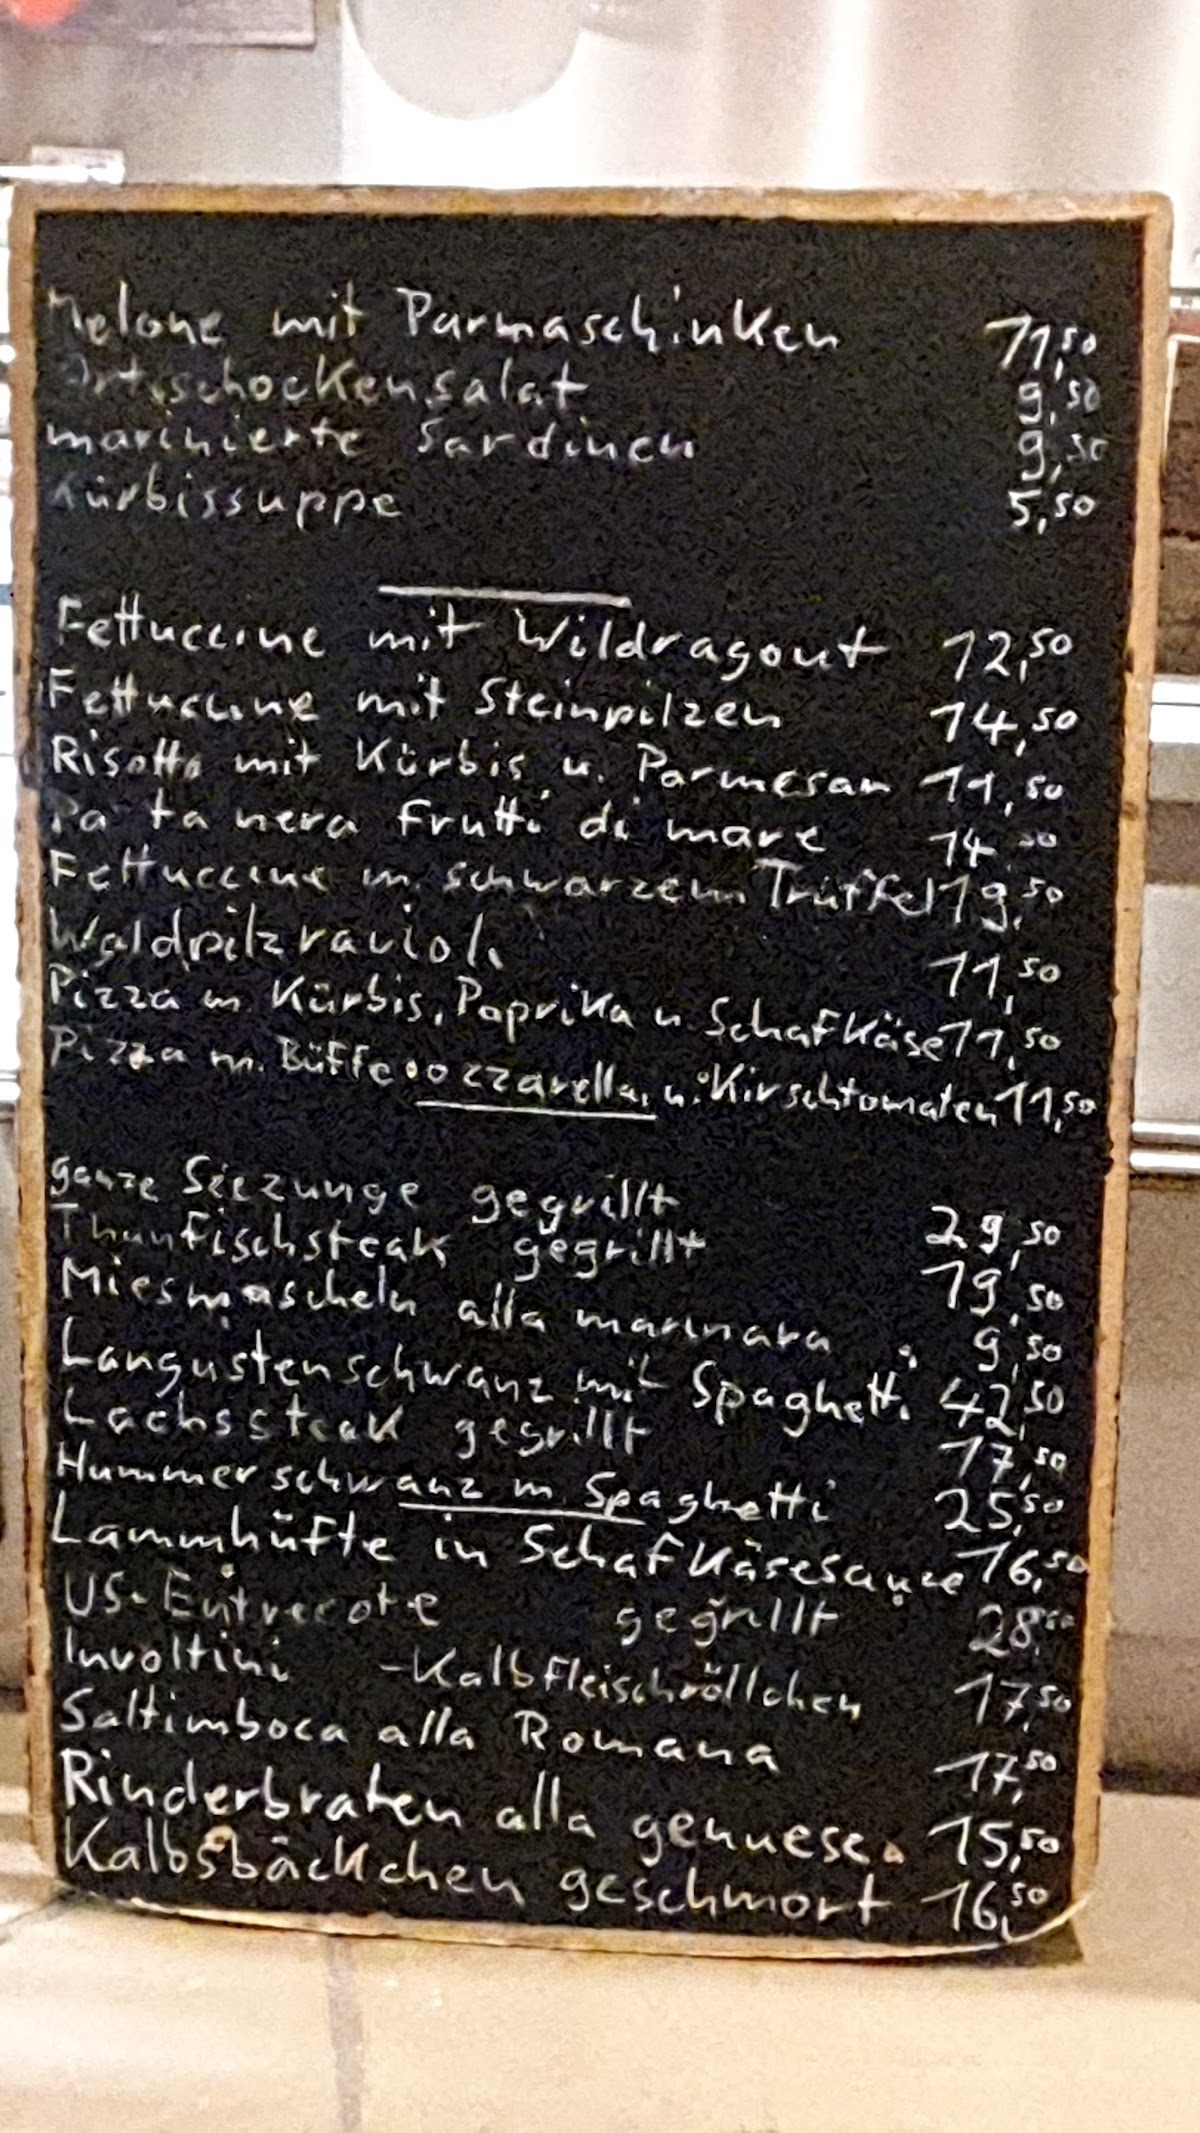 Melone mit Parmaschinken 11,50
Artischockensalat 9,50
marinierte Sardinen 9,50
Kürbissuppe 5,50
Fettuccine mit Wildragout 12,50
Fettuccine mit Steinpilzen 14,50
Risotto mit Kürbis u. Parmesan 11,50
Pasta nera Frutti di mare 14,50
Fettuccine m. schwarzem Trüffel 19,50
Waldpilzravioli 11,50
Pizza m. Kürbis, Paprika u. Schafkäse 11,50
Pizza m. Büffelmozzarella, u. Kirschtomaten 11,50
ganze Seezunge gegrillt 29,50
Thunfischsteak gegrillt 19,50
Miesmuscheln alla marinara 9,50
Langustenschwanz mit Spaghetti 42,50
Lachssteak gegrillt 17,50
Hummerschwanz m. Spaghetti 25,50
Lammhüfte in Schafkäsesauce 16,50
US-Entrecote gegrillt 28,50
Involtini -Kalbfleischröllchen 17,50
Saltimboca alla Romana 17,50
Rinderbraten alla genuese. 15,50
Kalbsbäckchen geschmort 16,50